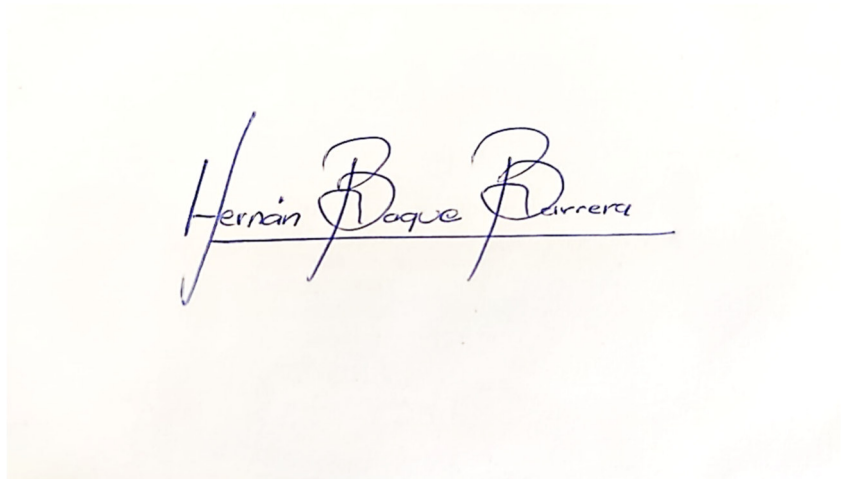 Hernán Baque Barrera